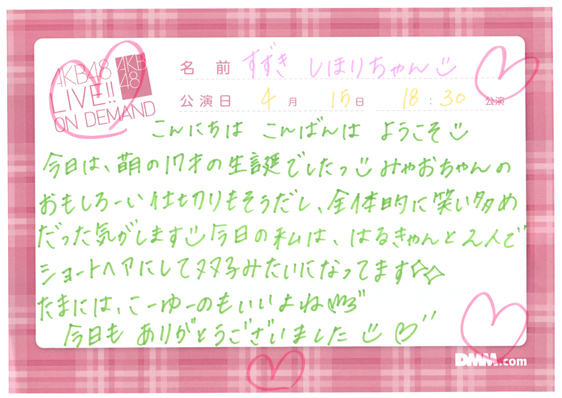 AKB48
LIVE!!
ON DEMAND
AKB
48
名前 すずき しほりちゃん
公演日 4月 15日 18:30 公演
こんにちは こんばんは ようこそ
今日は、萌の17才の生誕でしたっ みゃおちゃんの
おもしろーい仕切りもそうだし、全体的に笑い多め
だった気がします 今日の私は、はるきゃんと2人で
ショートヘアにしてヌヌ子みたいになってます☆☆
たまには、こーゆーのもいいよね
今日も ありがとうございました
DMM.com